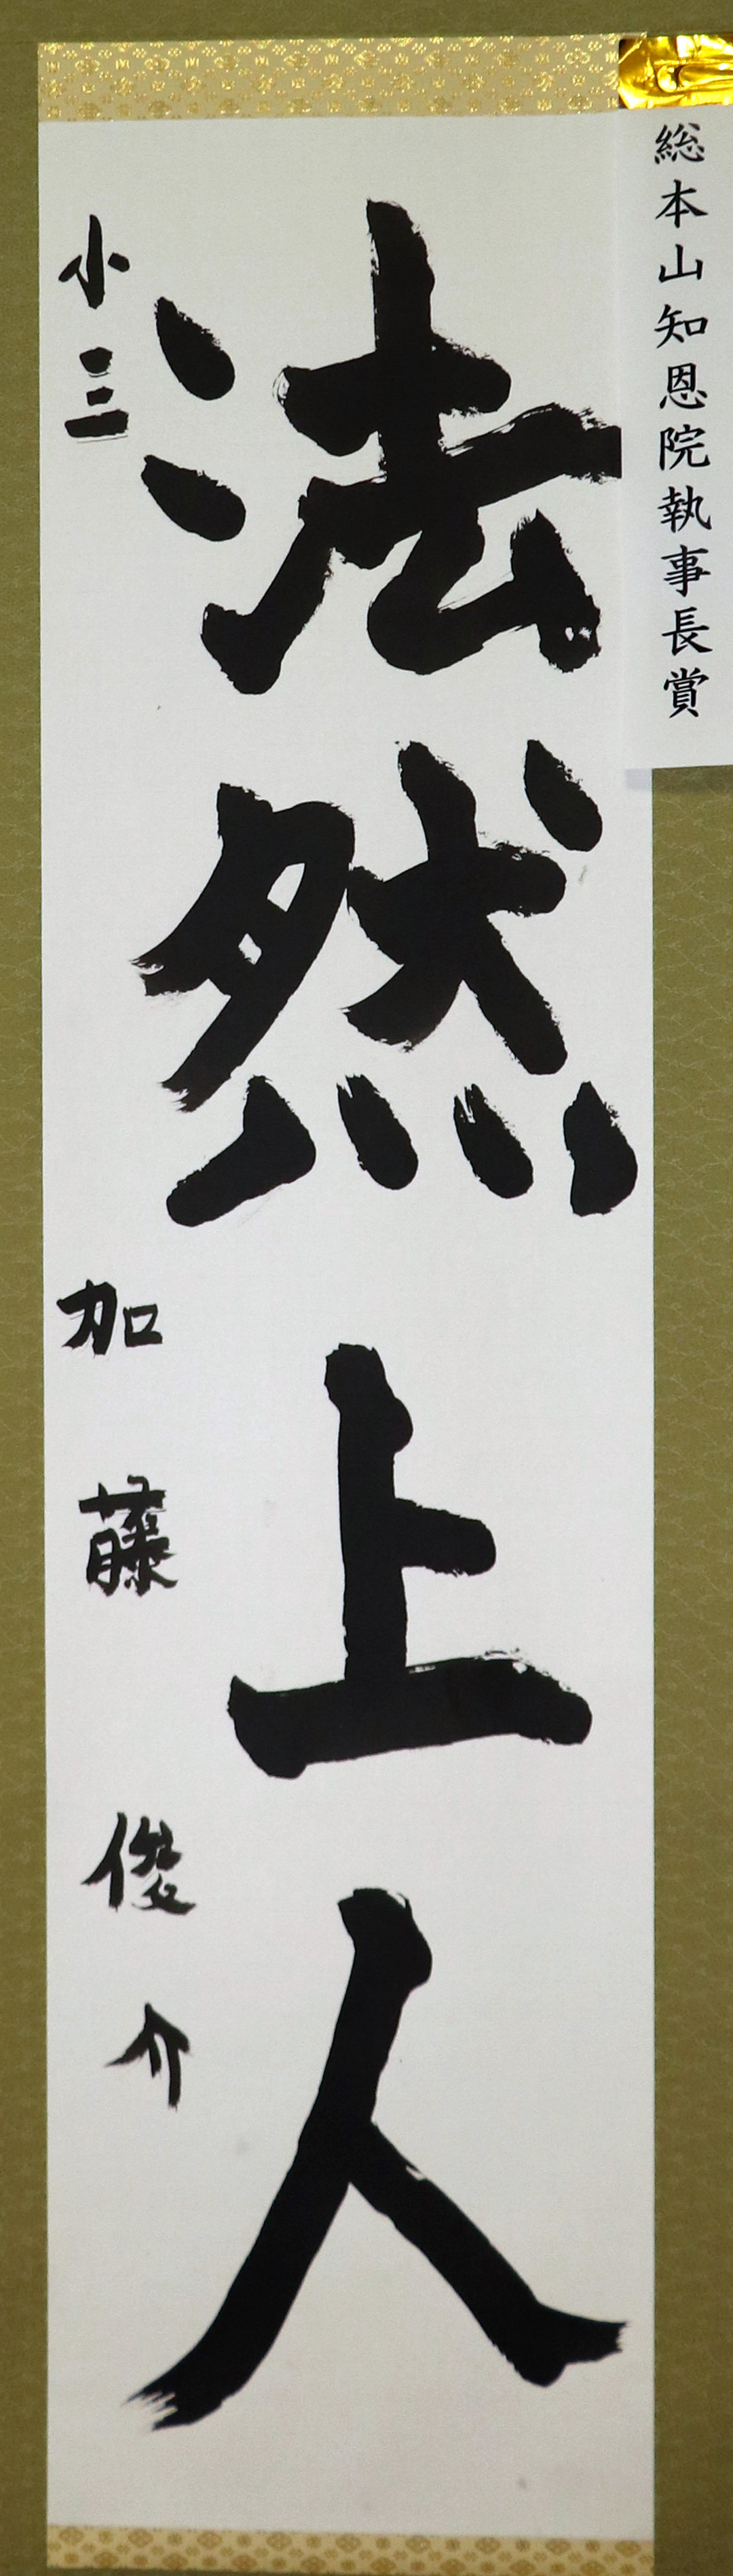 総本山知恩院執事長賞
法然上人
小三 加藤俊介